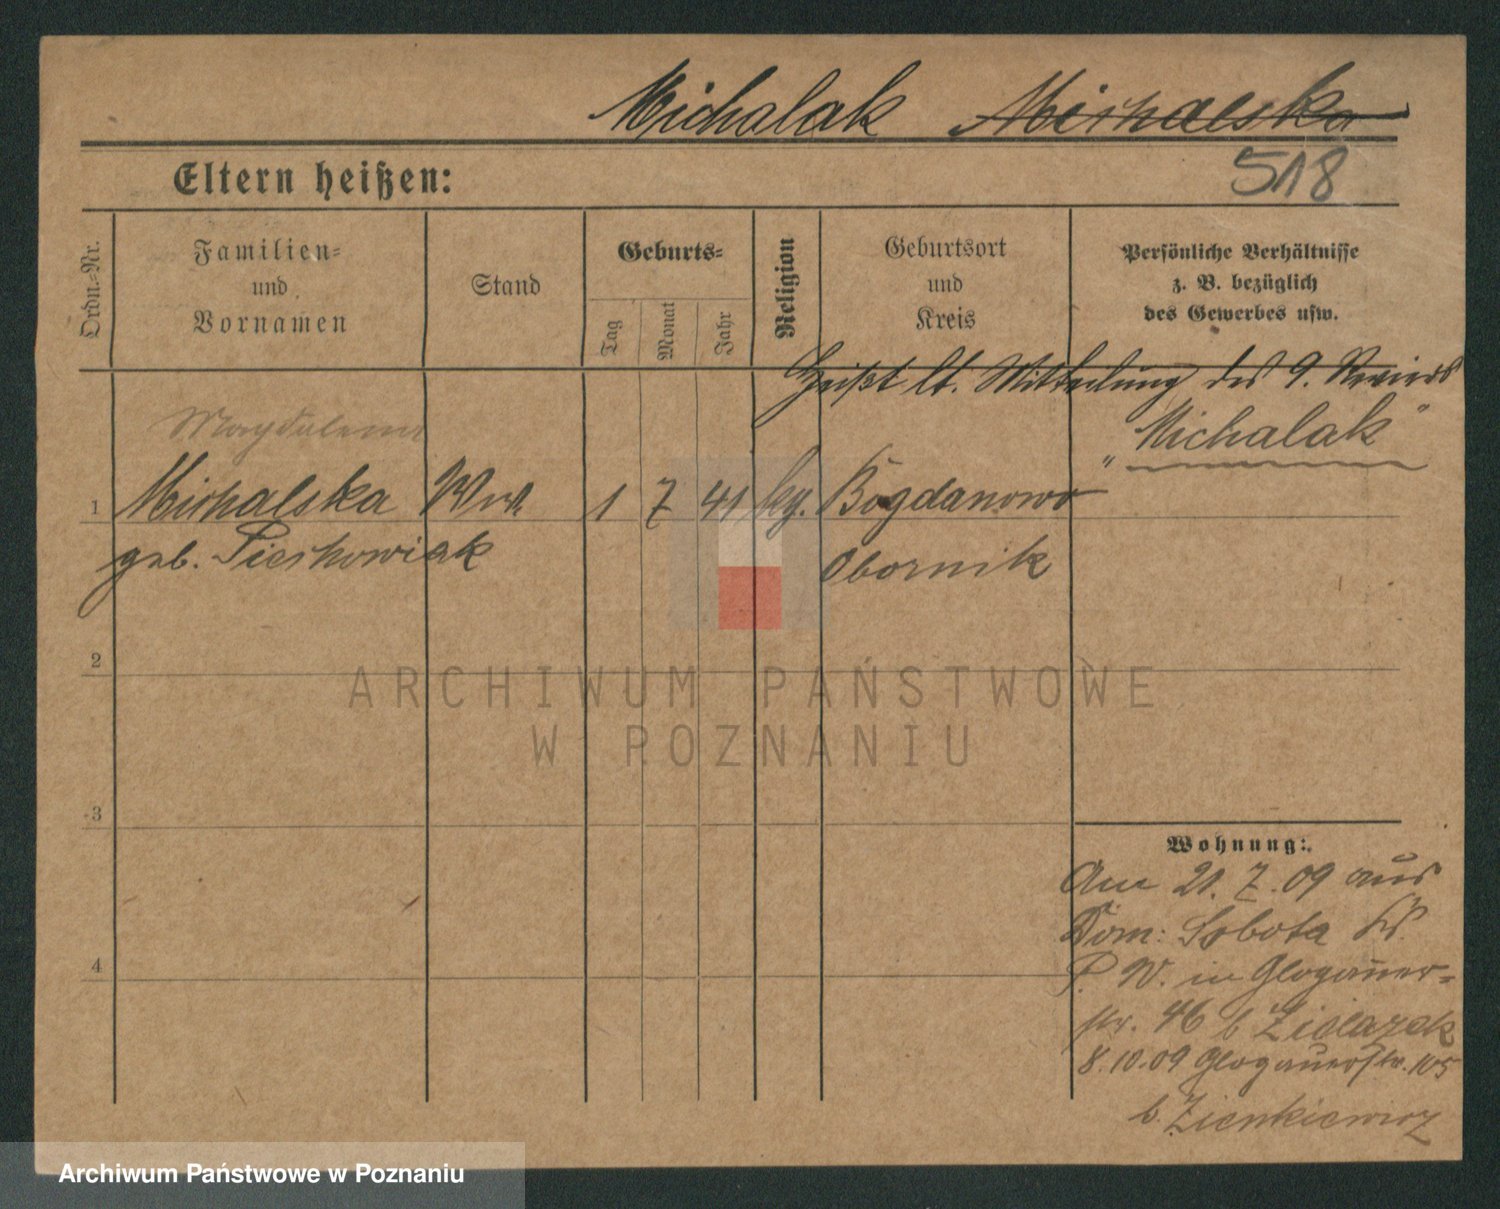 Michalak Michalska
518
Eltern heißen:
Ordn.-Nr.
Familien-
und
Vornamen
Stand
Geburts-
Tag
Monat
Jahr
Religion
Geburtsort
und
Kreis
Persönliche Verhältnisse
z. B. bezüglich
des Gewerbes usw.
heißt lt. Mitteilung des 9. Reviers
„Michalak"
Magdalena
1 Michalska Ww. 1 7 41 kg. Bogdanowo
geb. Pieskowiak Obornik
2
3
4
Wohnung:
Am 21.7.09 aus
Dom: Sobota Kr.
P. W. in Glogauer-
str. 46 b Zielazek
8.10.09 Glogauerstr. 105
b. Zienkiewicz
ARCHIWUM PAŃSTWOWE
W POZNANIU
Archiwum Państwowe w Poznaniu